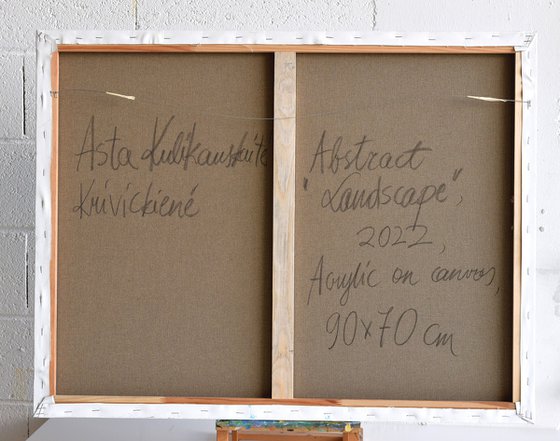 Asta Kulikauskaitė
Krivickienė
Abstract
"Landscape",
2022,
Acrylic on canvas,
90x70 cm